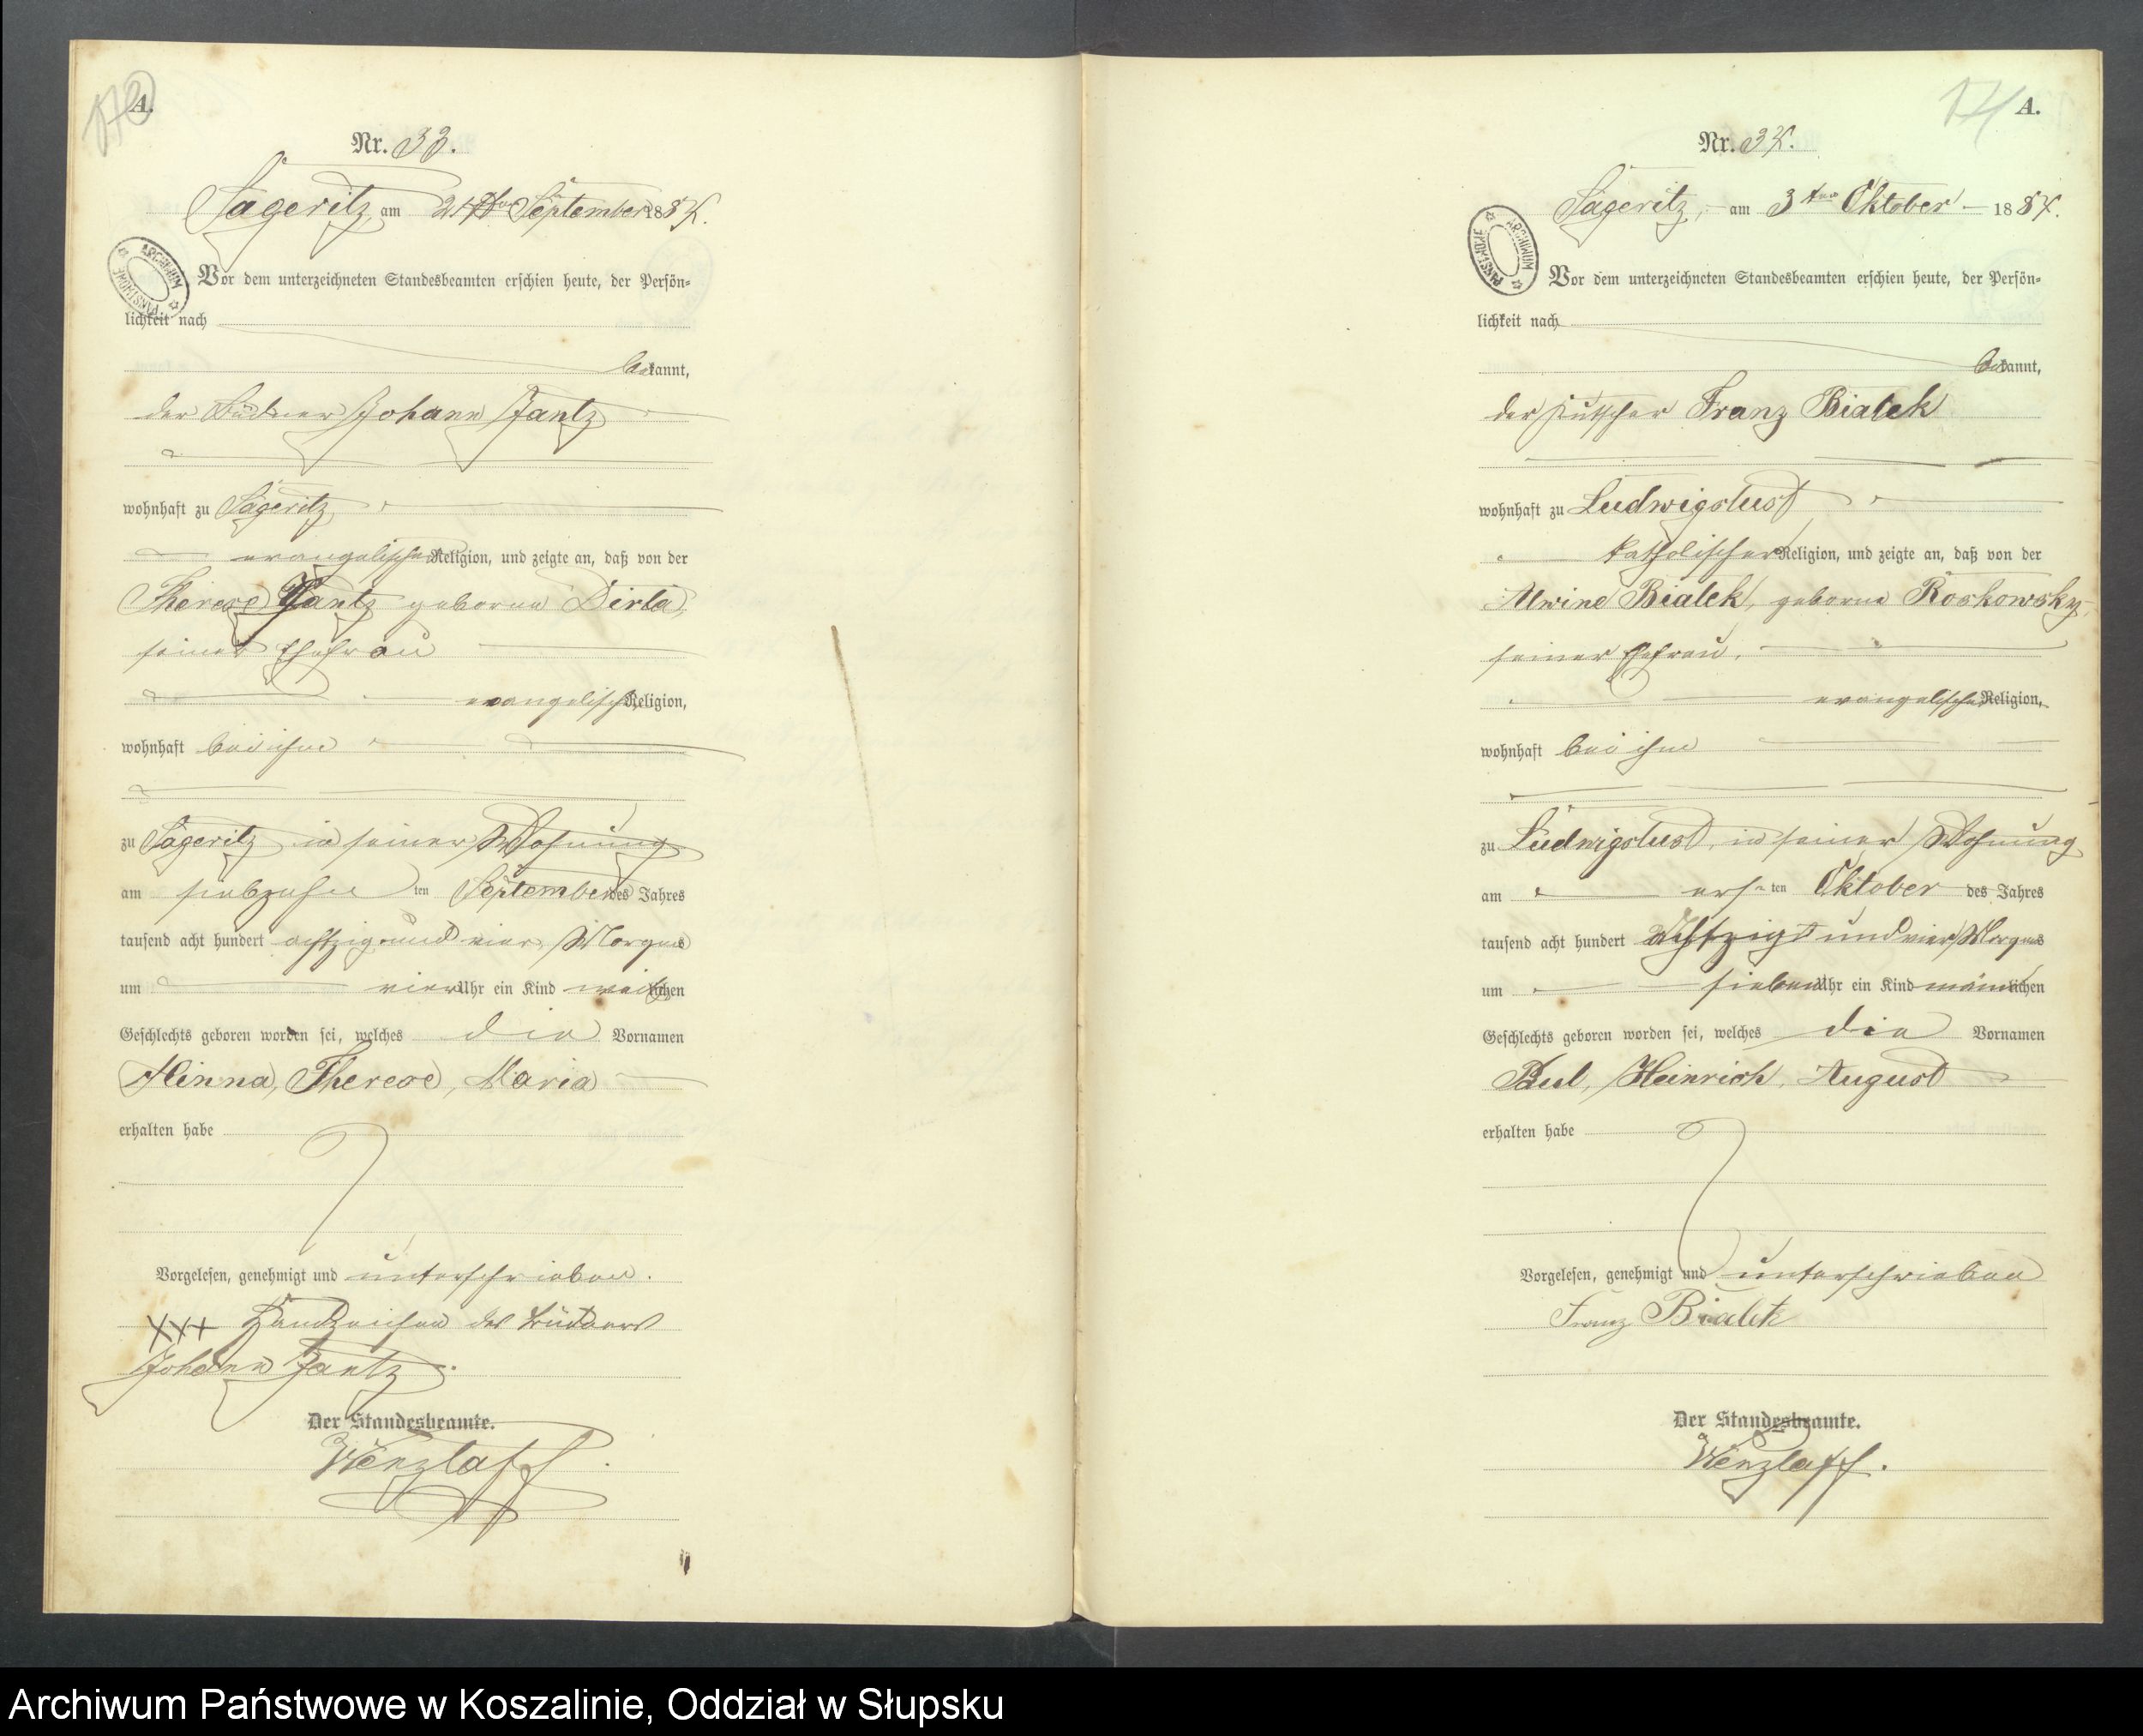 A.
Nr. 33.
Sageritz, am 21ten September 1884.
ARCHIWUM PAŃSTWOWE
Vor dem unterzeichneten Standesbeamten erschien heute, der Persön-
lichkeit nach
bekannt,
der Büdner Johann Jantz
wohnhaft zu Sageritz
evangelischer Religion, und zeigte an, daß von der
Therese Jantz geborne Dirla,
seiner Ehefrau
evangelischer Religion,
wohnhaft bei ihm
zu Sageritz in seiner Wohnung
am siebzehn ten September des Jahres
tausend acht hundert achtzig und vier Morgens
um vier Uhr ein Kind weiblichen
Geschlechts geboren worden sei, welches die Vornamen
Minna, Therese, Maria
erhalten habe
Vorgelesen, genehmigt und unterschrieben.
XXX Handzeichen des Büdners
Johann Jantz.
Der Standesbeamte.
Wenzlaff.
174
A.
Nr. 34.
Sageritz, am 3ten Oktober 1884.
ARCHIWUM PAŃSTWOWE
Vor dem unterzeichneten Standesbeamten erschien heute, der Persön-
lichkeit nach
bekannt,
der Kutscher Franz Bialek
wohnhaft zu Ludwigslust
katholischer Religion, und zeigte an, daß von der
Alwine Bialek, geborne Roskowsky,
seiner Ehefrau.
evangelischer Religion,
wohnhaft bei ihm
zu Ludwigslust, in seiner Wohnung
am ers ten Oktober des Jahres
tausend acht hundert achtzig und vier Morgens
um sieben Uhr ein Kind männlichen
Geschlechts geboren worden sei, welches die Vornamen
Paul, Heinrich, August
erhalten habe
Vorgelesen, genehmigt und unterschrieben
Franz Bialek
Der Standesbeamte.
Wenzlaff.
Archiwum Państwowe w Koszalinie, Oddział w Słupsku